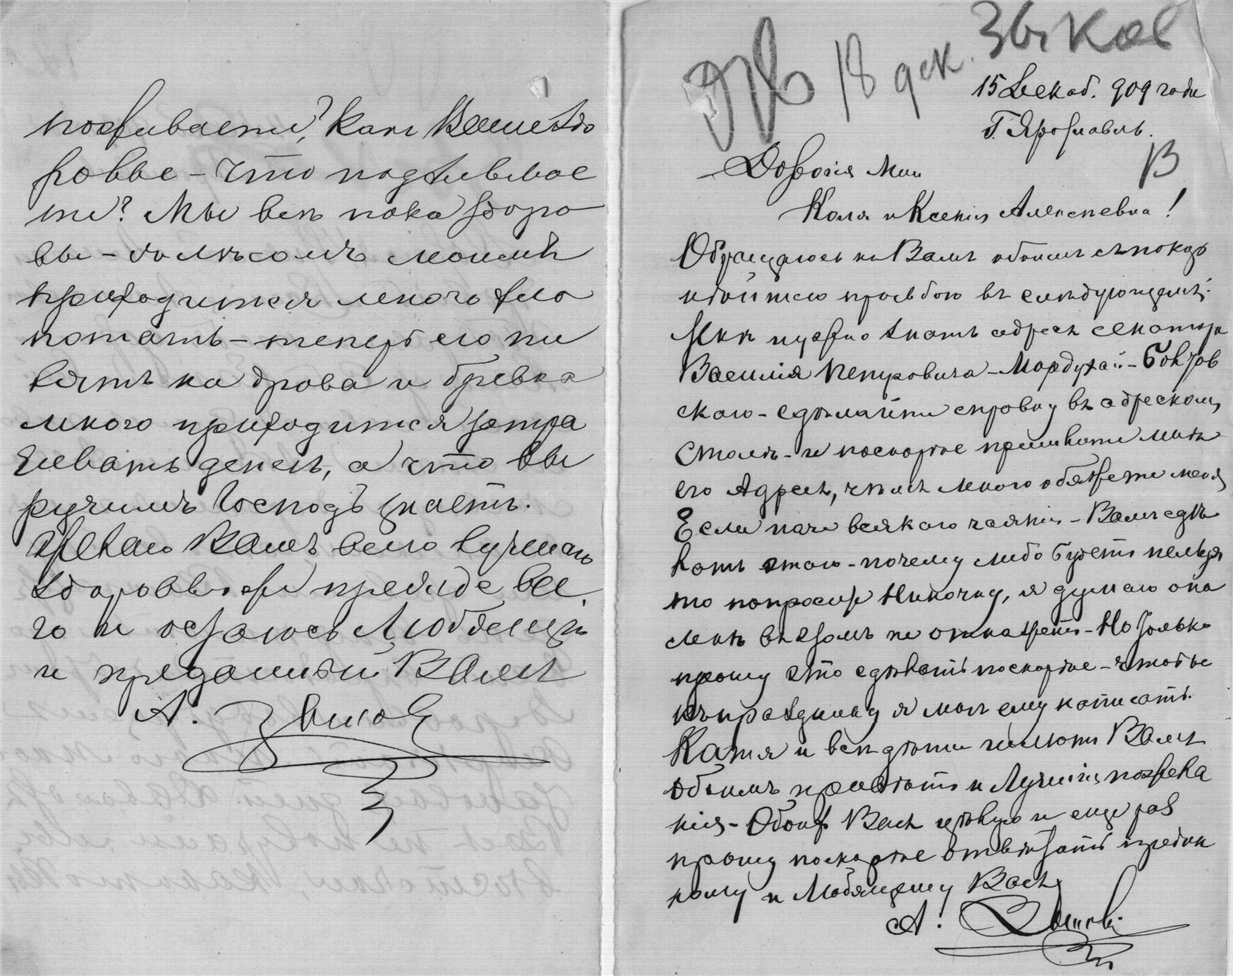 поживаете? Какъ Ваше здо
ровье – что подѣлывае
те? Мы всѣ пока здоро
вы – съ лѣсомъ моимъ
приходится много хло
потать – теперь его пи
лятъ на дрова и бревна
много приходится затра
чивать денегъ, а что вы
ручимъ Господь знаетъ.
Желаю Вамъ всего лучшаго
здоровья же прежде все
го и остаюсь Любящій
и преданный Вамъ
А. Зыковъ
18 дек. Зыков
15 Декаб. 909 года
Г. Ярославль.
В
Дорогія Мои
Коля и Ксенія Алексѣевна!
Обращаюсь къ Вамъ обоимъ съ покор
нѣйшею просьбою въ слѣдующемъ:
Мнѣ нужно знать адресъ сенатора
Василія Петровича – Мордухай-Болтов
скаго – сдѣлайте справку въ адресномъ
столѣ – и поскорѣе пришлите мнѣ
его Адресъ, чѣмъ много обяжете меня
Если паче всякаго чаянія – Вамъ сдѣ
лать этого – почему либо будетъ нельзя
то попросите Ниночку, я думаю она
мнѣ въ этомъ не откажетъ – Но только
прошу это сдѣлать поскорѣе – чтобы
къ празднику я могъ ему написать.
Катя и всѣ дѣти шлютъ Вамъ
обоимъ привѣтъ и Лучшія пожела
нія – Обоихъ Васъ цѣлую и еще разъ
прошу поскорѣе отвѣтить предан
ному и Любящему Васъ
А. Зыковъ